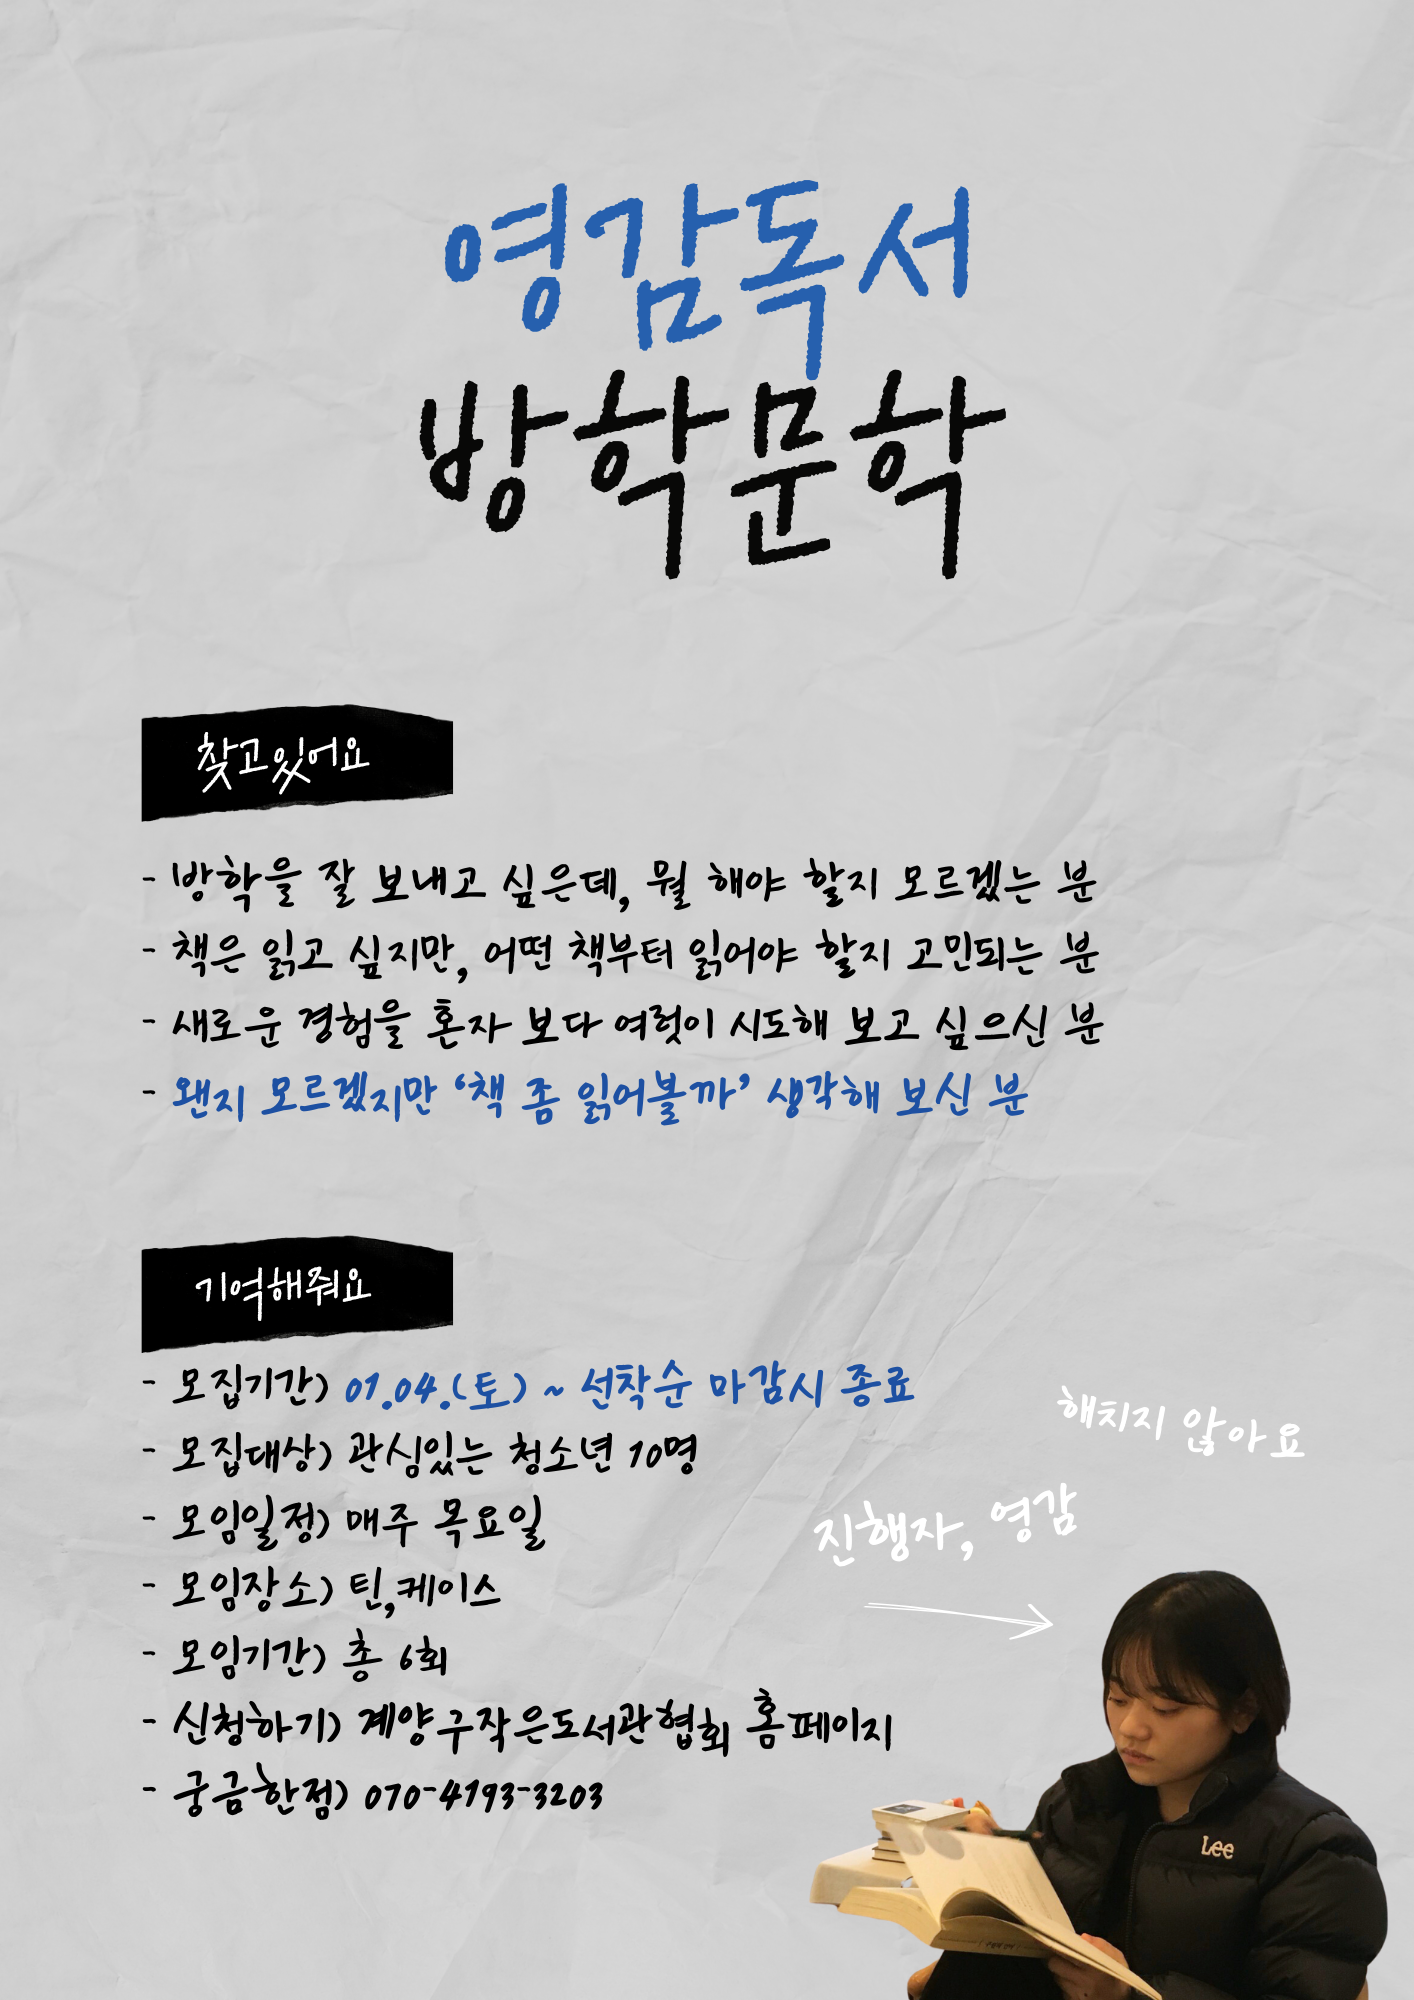 영감독서
방학문학
찾고있어요
- 방학을 잘 보내고 싶은데, 뭘 해야 할지 모르겠는 분
- 책은 읽고 싶지만, 어떤 책부터 읽어야 할지 고민되는 분
- 새로운 경험을 혼자 보다 여럿이 시도해 보고 싶으신 분
- 왠지 모르겠지만 ‘책 좀 읽어볼까’ 생각해 보신 분
기억해줘요
- 모집기간) 01.04.(토) ~ 선착순 마감시 종료
- 모집대상) 관심있는 청소년 10명
- 모임일정) 매주 목요일
- 모임장소) 틴,케이스
- 모임기간) 총 6회
- 신청하기) 계양구작은도서관협회 홈페이지
- 궁금한점) 070-4193-3203
해치지 않아요
진행자, 영감
Lee